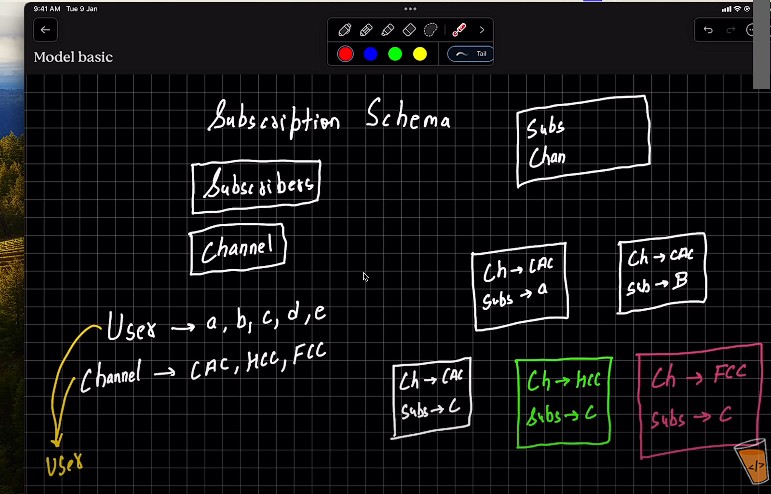 9:41 AM Tue 9 Jan
Model basic
Tail
Subscription Schema
Subscribers
Channel
Subs
Chan
Ch → CAC
Subs → a
Ch → CAC
Sub → B
User → a, b, c, d, e
Channel → CAC, HCC, FCC
User
Ch → CAC
Subs → C
Ch → HCC
Subs → C
Ch → FCC
Subs → C
</>